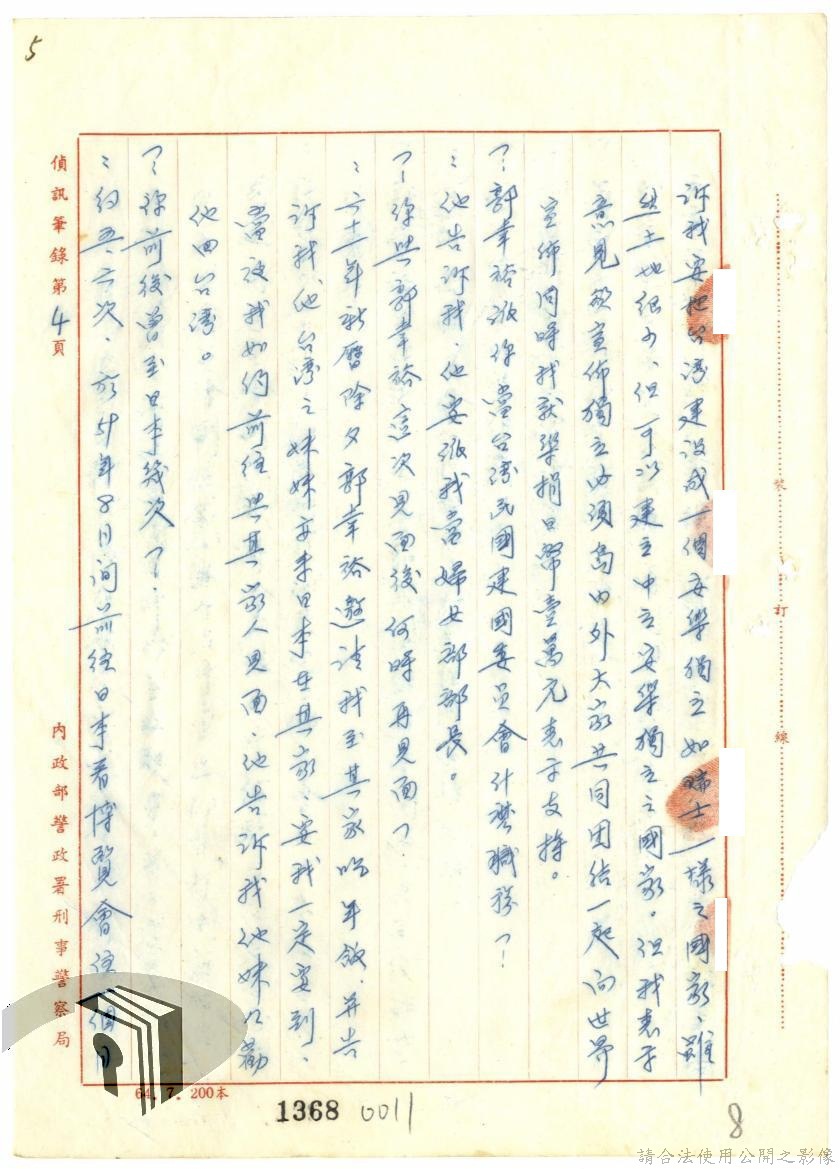 5
訴我要把台湾建設成一個安樂獨立如瑞士一樣之國家、雖
然土地很少、但可以建立中立安樂獨立之國家。但我表示
意見欲宣佈獨立必須島内外大家共同团结一起向世界
宣佈同時我就樂捐日幣壹萬元表示支持。
?:郭幸裕派你當台湾民國建國委員會什麼職務?
:他告訴我、他要派我當婦女部部長。
?:你與郭幸裕這次見面後何時再見面?
:六十一年新曆除夕郭幸裕邀请我至其家吃年飯、并告
訴我、他台湾之妹妹亦来日本在其家、要我一定要到、
當夜我如约前往與其家人見面、他告訴我他妹以勸
他回台湾。
?:你前後曾至日本幾次?
:约五、六次、於59年8月间前往日本看博覧會住 個月
偵訊筆錄第4頁
內政部警政署刑事警察局
裝訂線
64.7.200本
1368 0011
8
請合法使用公開之影像